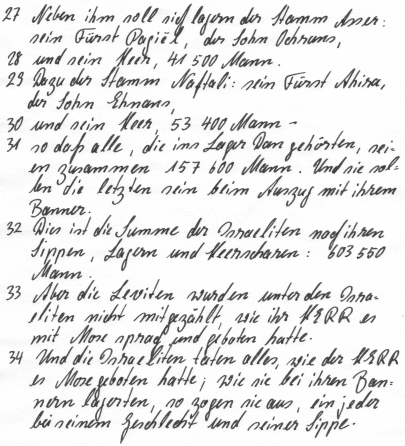 27 Neben ihm soll sich lagern der Stamm Asser:
sein Fürst Pagiël, der Sohn Ochrans,
28 und sein Heer, 41 500 Mann.
29 Dazu der Stamm Naftali: sein Fürst Ahira,
der Sohn Enans,
30 und sein Heer, 53 400 Mann -
31 so daß alle, die ins Lager Dan gehörten, sei-
en zusammen 157 600 Mann. Und sie sol-
len die letzten sein beim Auszug mit ihrem
Banner.
32 Dies ist die Summe der Israeliten nach ihren
Sippen, Lagern und Heerscharen: 603 550
Mann.
33 Aber die Leviten wurden unter den Isra-
eliten nicht mitgezählt, wie ihr HERR es
mit Mose sprach und geboten hatte.
34 Und die Israeliten taten alles, wie der HERR
es Mose geboten hatte; wie sie bei ihren Ban-
nern lagerten, so zogen sie aus, ein jeder
bei seinem Geschlecht und seiner Sippe.